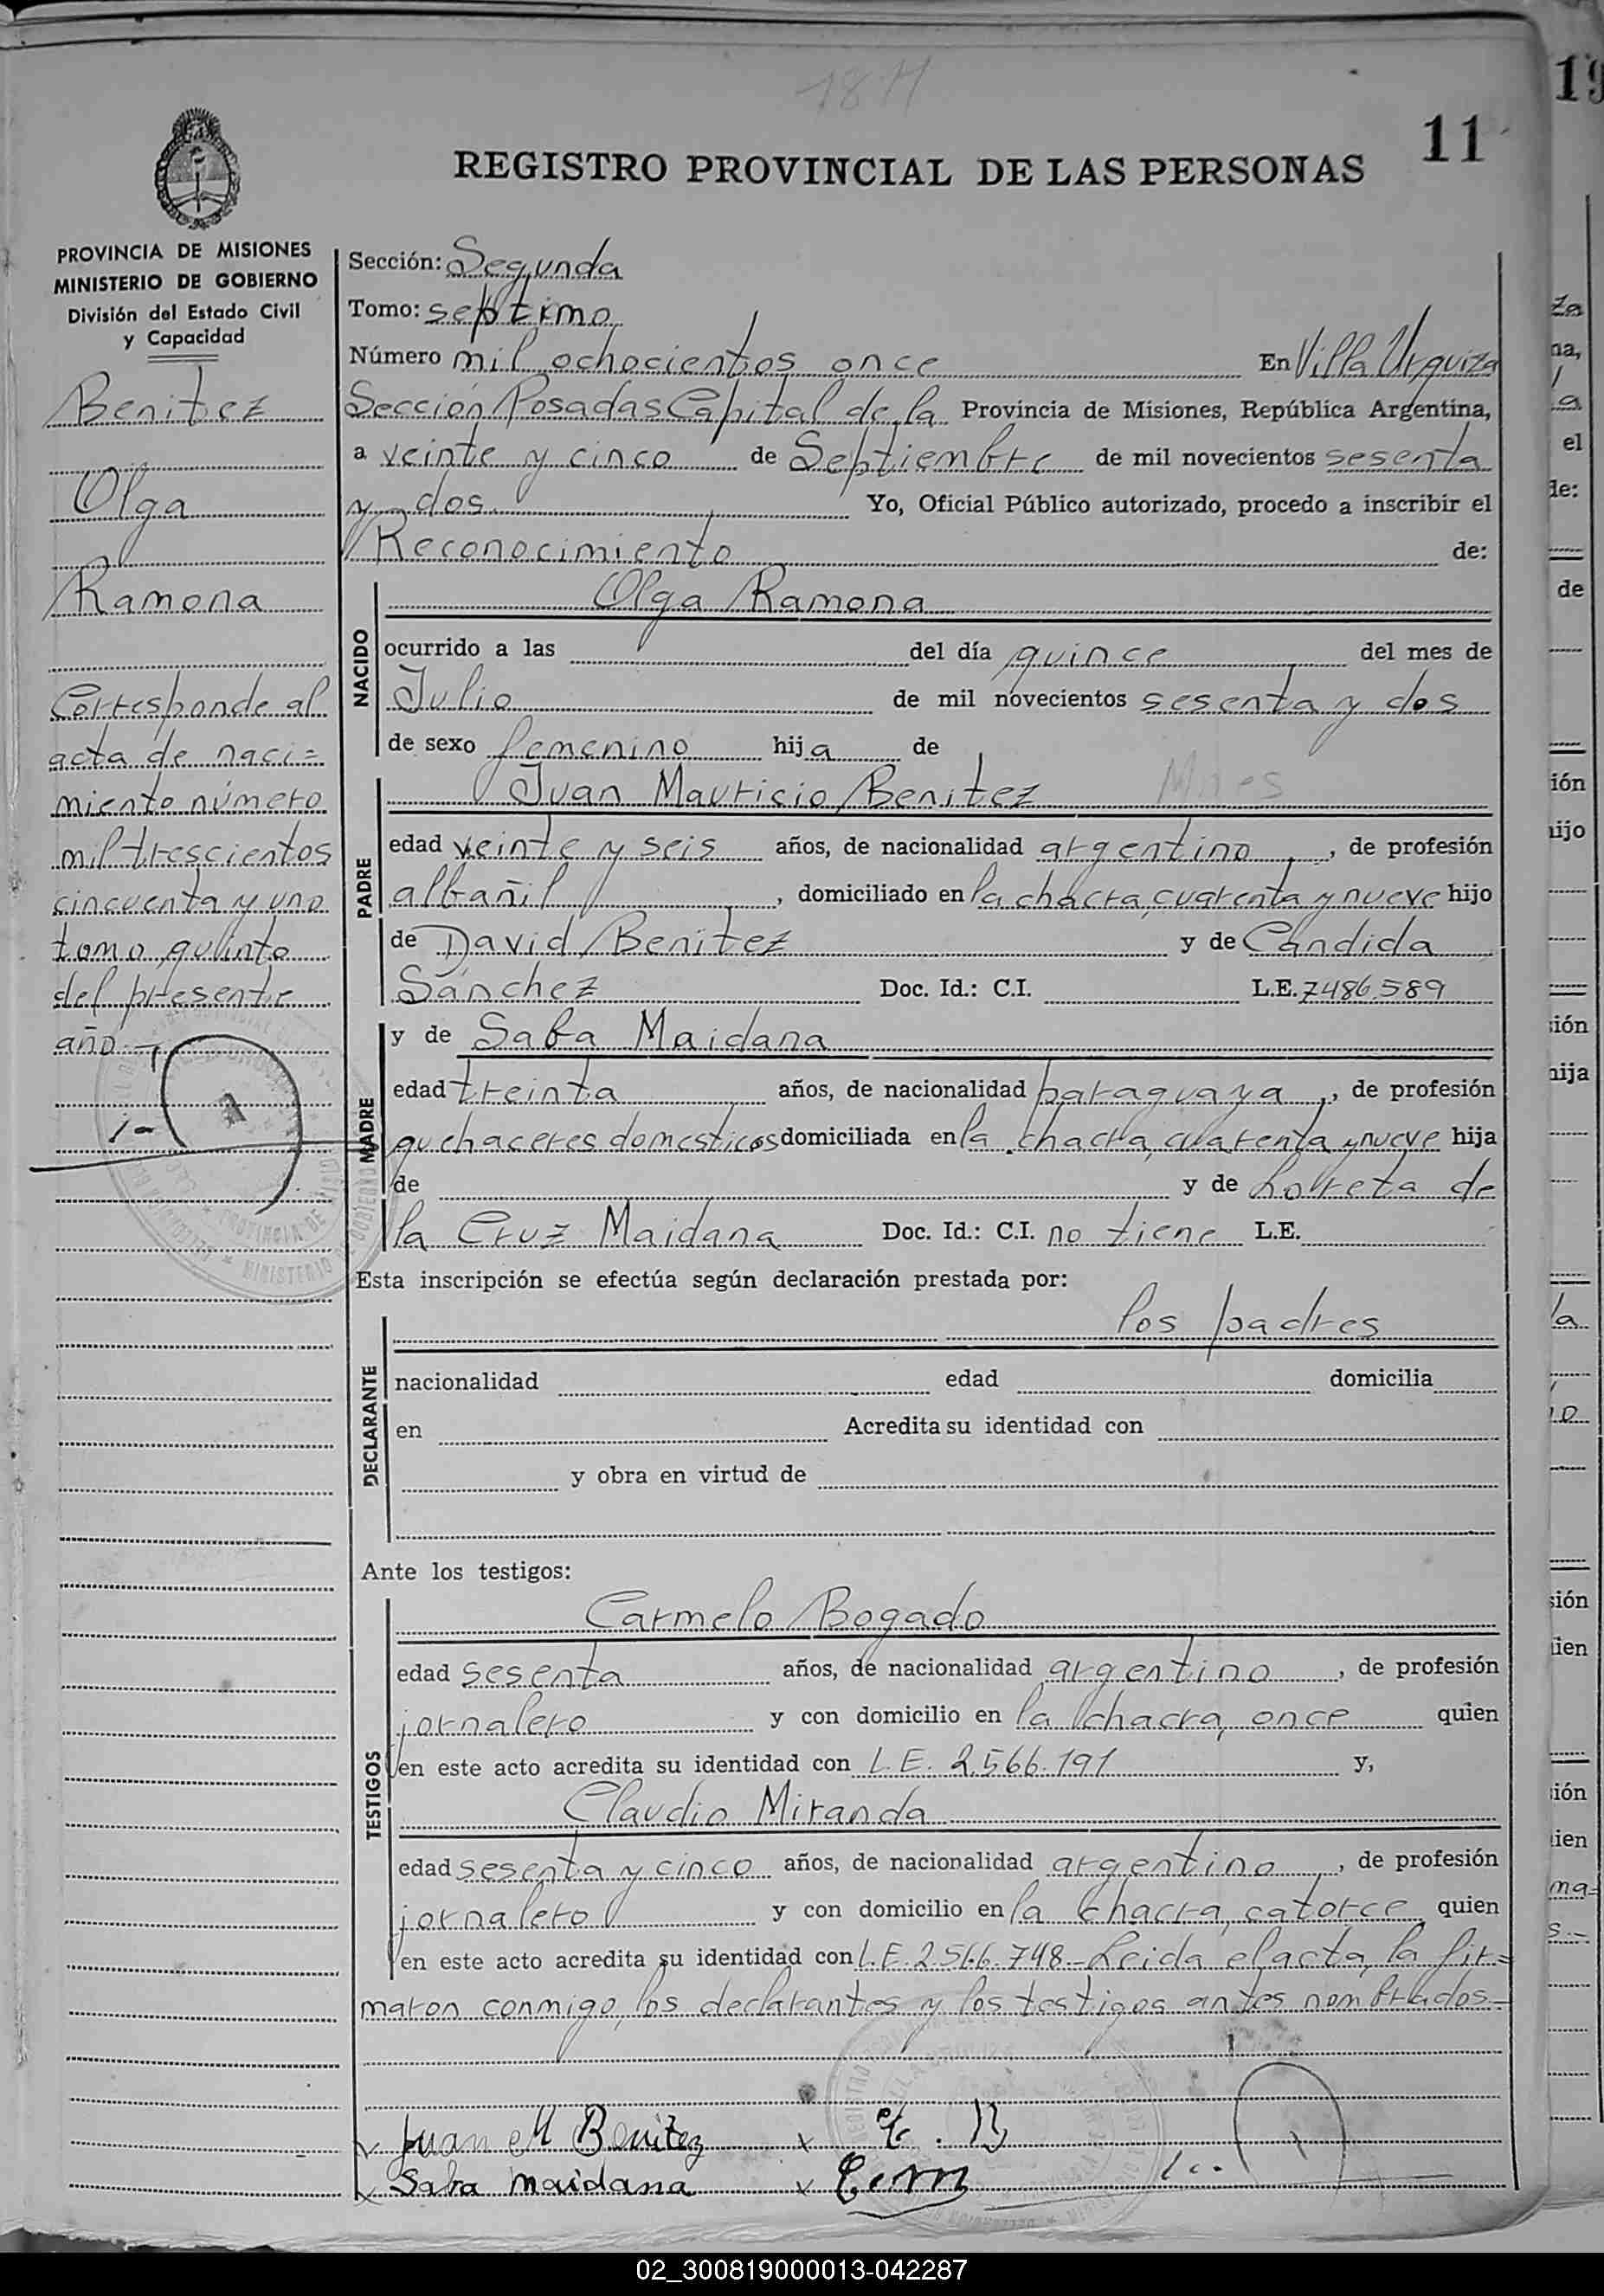 1811
11
REGISTRO PROVINCIAL DE LAS PERSONAS
PROVINCIA DE MISIONES
MINISTERIO DE GOBIERNO
División del Estado Civil
y Capacidad
Benitez
Olga
Ramona
Corresponde al
acta de naci=
miento número
mil trescientos
cincuenta y uno
tomo quinto
del presente
año.-
Sección: Segunda
Tomo: septimo
Número mil ochocientos once En Villa Urquiza
Sección Posadas Capital de la Provincia de Misiones, República Argentina,
a veinte y cinco de Septiembre de mil novecientos sesenta
y dos Yo, Oficial Público autorizado, procedo a inscribir el
Reconocimiento de:
NACIDO
Olga Ramona
ocurrido a las del día quince del mes de
Julio de mil novecientos sesenta y dos
de sexo femenino hija de
PADRE
Juan Mauricio Benitez
edad veinte y seis años, de nacionalidad argentino, de profesión
albañil, domiciliado en la chacra cuarenta y nueve hijo
de David Benitez y de Candida
Sánchez Doc. Id.: C.I. L.E. 7486.589
MADRE
y de Saba Maidana
edad treinta años, de nacionalidad paraguaya, de profesión
quehaceres domesticos domiciliada en la chacra cuarenta y nueve hija
de y de Lorreta de
la Cruz Maidana Doc. Id.: C.I. no tiene L.E.
Esta inscripción se efectúa según declaración prestada por:
DECLARANTE
los padres
nacionalidad edad domicilia
en Acredita su identidad con
y obra en virtud de
Ante los testigos:
TESTIGOS
Carmelo Bogado
edad sesenta años, de nacionalidad argentino, de profesión
jornalero y con domicilio en la chacra once quien
en este acto acredita su identidad con L.E. 2.566.191 y,
Claudio Miranda
edad sesenta y cinco años, de nacionalidad argentino, de profesión
jornalero y con domicilio en la chacra catorce quien
en este acto acredita su identidad con L.E. 2.566.748.- Leida el acta, la fir=
maron conmigo, los declarantes y los testigos antes nombrados.-
Juan M Benitez
Saba maidana
02_300819000013-042287